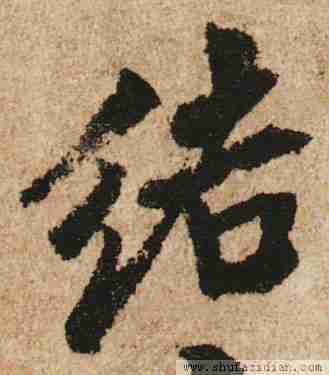 结
www.shufazidian.com